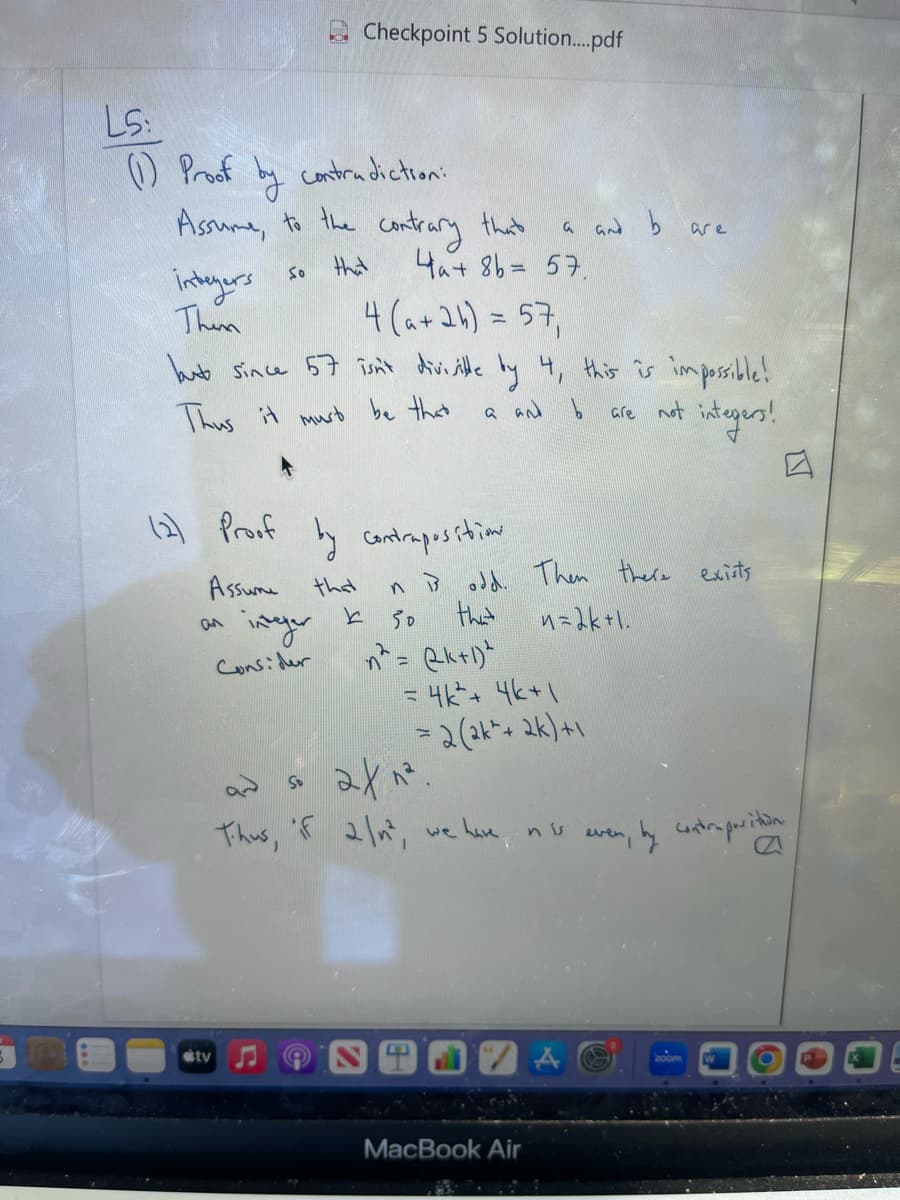 Checkpoint 5 Solution....pdf
L5:
(1) Proof by contradiction:
Assume, to the contrary that a and b are
integers so that 4a+8b= 57.
Then 4(a+2b) = 57,
but since 57 isn't divisible by 4, this is impossible!
Thus it must be that a and b are not integers!
(2) Proof by contraposition
Assume that n is odd. Then there exists
an integer k so that n=2k+1.
Consider n² = (2k+1)²
= 4k²+ 4k+1
= 2(2k²+ 2k)+1
and so 2∤n².
Thus, if 2|n², we have n is even, by contraposition
tv zoom W P X
MacBook Air